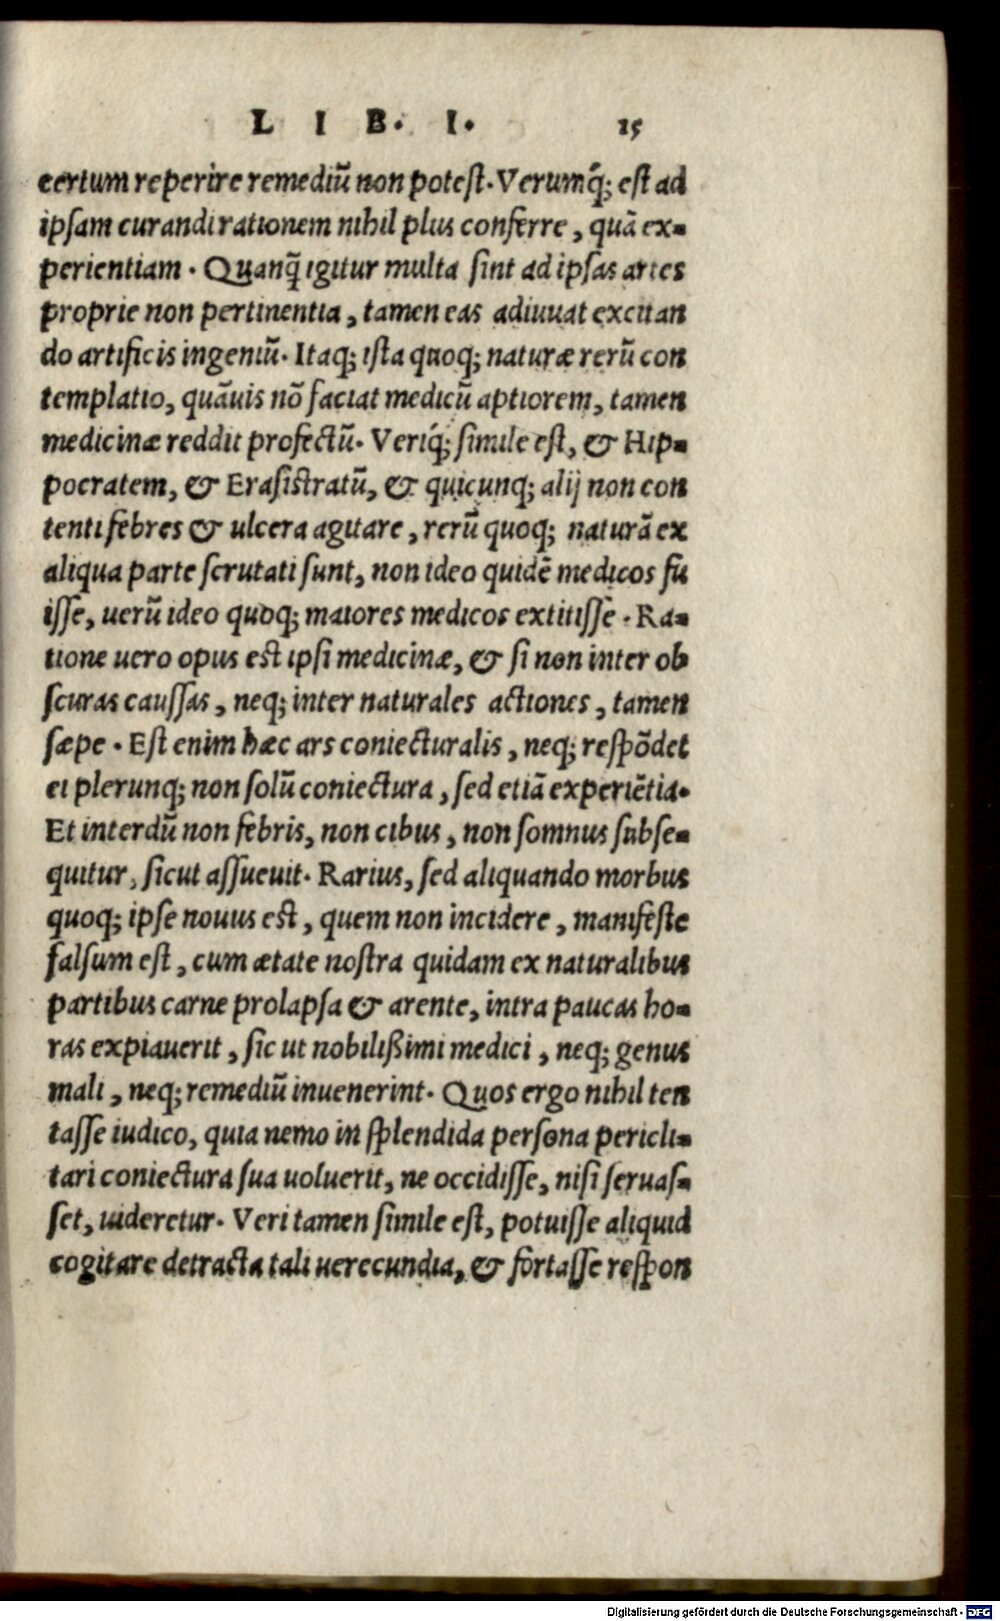 LIB. I. 15
certum reperire remediũ non potest. Verumq́; est ad
ipsam curandi rationem nihil plus conferre, quã ex-
perientiam. Quanq̃ igitur multa sint ad ipsas artes
proprie non pertinentia, tamen eas adiuuat excitan
do artificis ingeniũ. Itaq; ista quoq; naturæ rerũ con
templatio, quãuis nõ faciat medicũ aptiorem, tamen
medicinæ reddit profectũ. Veriq́; simile est, & Hip-
pocratem, & Erasistratũ, & quicunq; alij non con
tenti febres & ulcera agitare, rerũ quoq; naturã ex
aliqua parte scrutati sunt, non ideo quidẽ medicos fu
isse, uerũ ideo quoq; maiores medicos extitisse. Ra-
tione uero opus est ipsi medicinæ, & si non inter ob
scuras caussas, neq; inter naturales actiones, tamen
sæpe. Est enim hæc ars coniecturalis, neq; respõdet
ei plerunq; non solũ coniectura, sed etiã experiẽtia.
Et interdũ non febris, non cibus, non somnus subse-
quitur, sicut assueuit. Rarius, sed aliquando morbus
quoq; ipse nouus est, quem non incidere, manifeste
falsum est, cum ætate nostra quidam ex naturalibus
partibus carne prolapsa & arente, intra paucas ho-
ras expiauerit, sic ut nobilißimi medici, neq; genus
mali, neq; remediũ inuenerint. Quos ergo nihil ten
tasse iudico, quia nemo in splendida persona pericli-
tari coniectura sua uoluerit, ne occidisse, nisi seruas-
set, uideretur. Veri tamen simile est, potuisse aliquid
cogitare detracta tali uerecundia, & fortasse respon
Digitalisierung gefördert durch die Deutsche Forschungsgemeinschaft - DFG